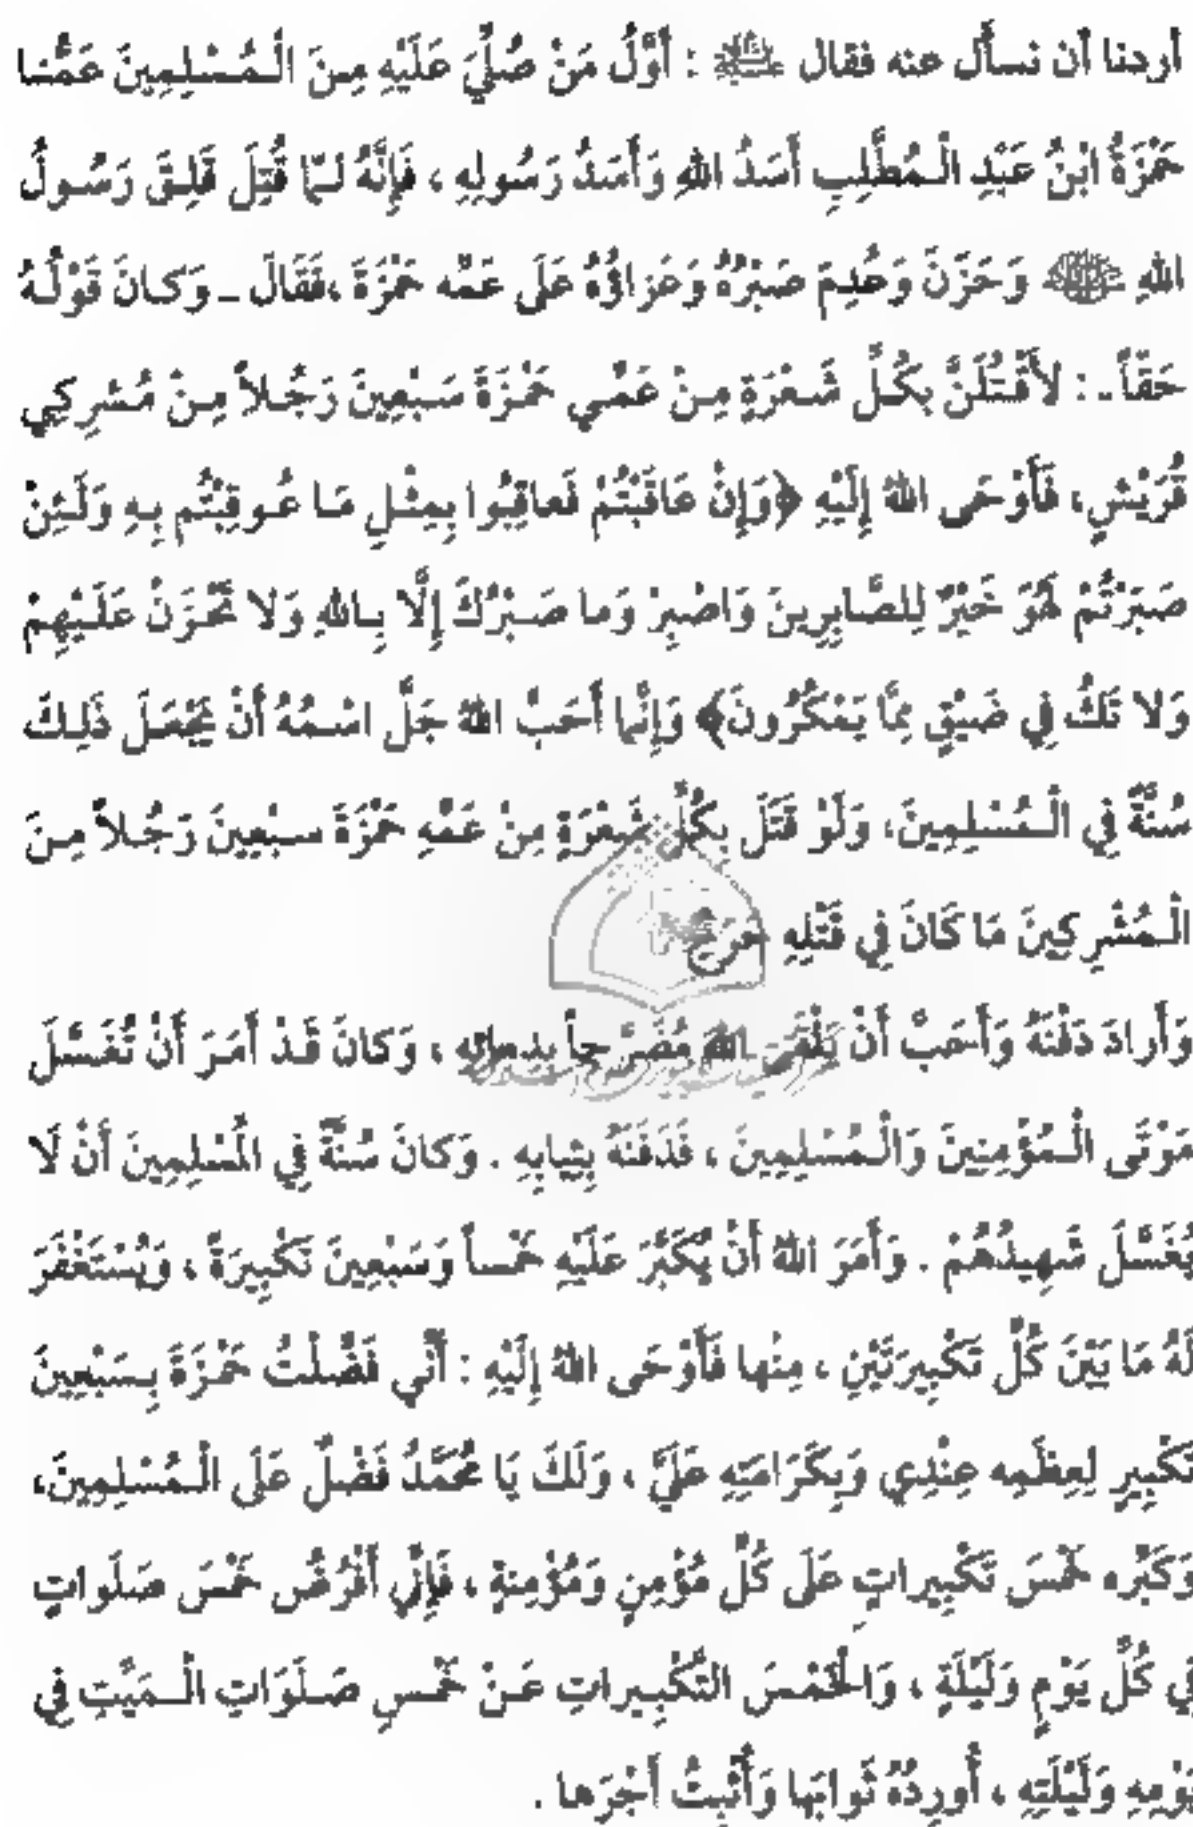 أردنا أن نسأل عنه فقال عليه السلام : أَوَّلُ مَنْ صُلِّيَ عَلَيْهِ مِنَ الْمُسْلِمِينَ عَمُّنا
حَمْزَةُ ابْنُ عَبْدِ الْمُطَّلِبِ أَسَدُ اللهِ وَأَسَدُ رَسُولِهِ ، فَإِنَّهُ لمّا قُتِلَ قَلِقَ رَسُولُ
اللهِ وَحَزَنَ وَعُدِمَ صَبْرُهُ وَعَزاؤُهُ عَلَى عَمِّه حَمْزَةَ ،فَقَالَ ـ وَكانَ قَوْلُهُ
حَقّاً ـ : لأَقْتُلَنَّ بِكُلِّ شَعْرَةٍ مِنْ عَمِّي حَمْزَةَ سَبْعِينَ رَجُلاً مِنْ مُشرِكِي
قُرَيْشٍ، فَأَوْحَى اللهُ إِلَيْهِ ﴿وَإِنْ عَاقَبْتُمْ فَعاقِبُوا بِمِثْلِ مَا عُوقِبْتُم بِهِ وَلَئِنْ
صَبَرْتُمْ لَهُوَ خَيْرٌ لِلصَّابِرِينَ وَاصْبِرْ وَما صَبْرُكَ إِلَّا بِاللهِ وَلا تَحْزَنْ عَلَيْهِمْ
وَلا تَكُ فِي ضَيْقٍ مِمَّا يَمْكُرُونَ﴾ وَإِنَّما أَحَبَّ اللهُ جَلَّ اسْمُهُ أَنْ يَجْعَلَ ذَلِكَ
سُنَّةً فِي الْمُسْلِمِينَ، وَلَوْ قَتَلَ بِكُلِّ شَعْرَةٍ مِنْ عَمِّهِ حَمْزَةَ سبْعِينَ رَجُلاً مِنَ
الْمُشْرِكِينَ مَا كَانَ فِي قَتْلِهِ حَرَجٌ
وَأَرادَ دَفْنَهُ وَأَحَبَّ أَنْ يَلْقَى اللهَ مُضَرَّجاً بِدِمائِهِ ، وَكانَ قَدْ أَمَرَ أَنْ تُغَسَّلَ
مَوْتَى الْمُؤْمِنِينَ وَالْمُسْلِمِينَ ، فَدَفَنَهُ بِثِيابِهِ . وَكانَ سُنَّةً فِي الْمُسْلِمِينَ أَنْ لَا
يُغَسَّلَ شَهِيدُهُمْ . وَأَمَرَ اللهُ أَنْ يُكَبِّرَ عَلَيْهِ خَمْساً وَسَبْعِينَ تَكْبِيرَةً ، وَيُسْتَغْفَرَ
لَهُ مَا بَيْنَ كُلِّ تَكْبِيرَتَيْنِ ، مِنْها فَأَوْحَى اللهُ إِلَيْهِ : أَنِّي فَضَّلْتُ حَمْزَةَ بِسَبْعِينَ
تَكْبِيرٍ لِعِظَمِه عِنْدِي وَبِكَرَامَتِهِ عَلَيَّ ، وَلَكَ يَا مُحَمَّدُ فَضْلٌ عَلَى الْمُسْلِمِينَ،
وَكَبِّره خَمْسَ تَكْبِيراتٍ عَلَى كُلِّ مُؤْمِنٍ وَمُؤْمِنةٍ ، فَإِنِّي أَفْرُضُ خَمْسَ صَلَواتٍ
فِي كُلِّ يَوْمٍ وَلَيْلَةٍ ، وَالْخَمْسَ التَّكْبِيراتِ عَنْ خَمْسِ صَلَوَاتِ الْمَيِّتِ فِي
يَوْمِهِ وَلَيْلَتِهِ ، أُورِدُهُ ثَوابَها وَأُثْبِتُ أَجْرَها .